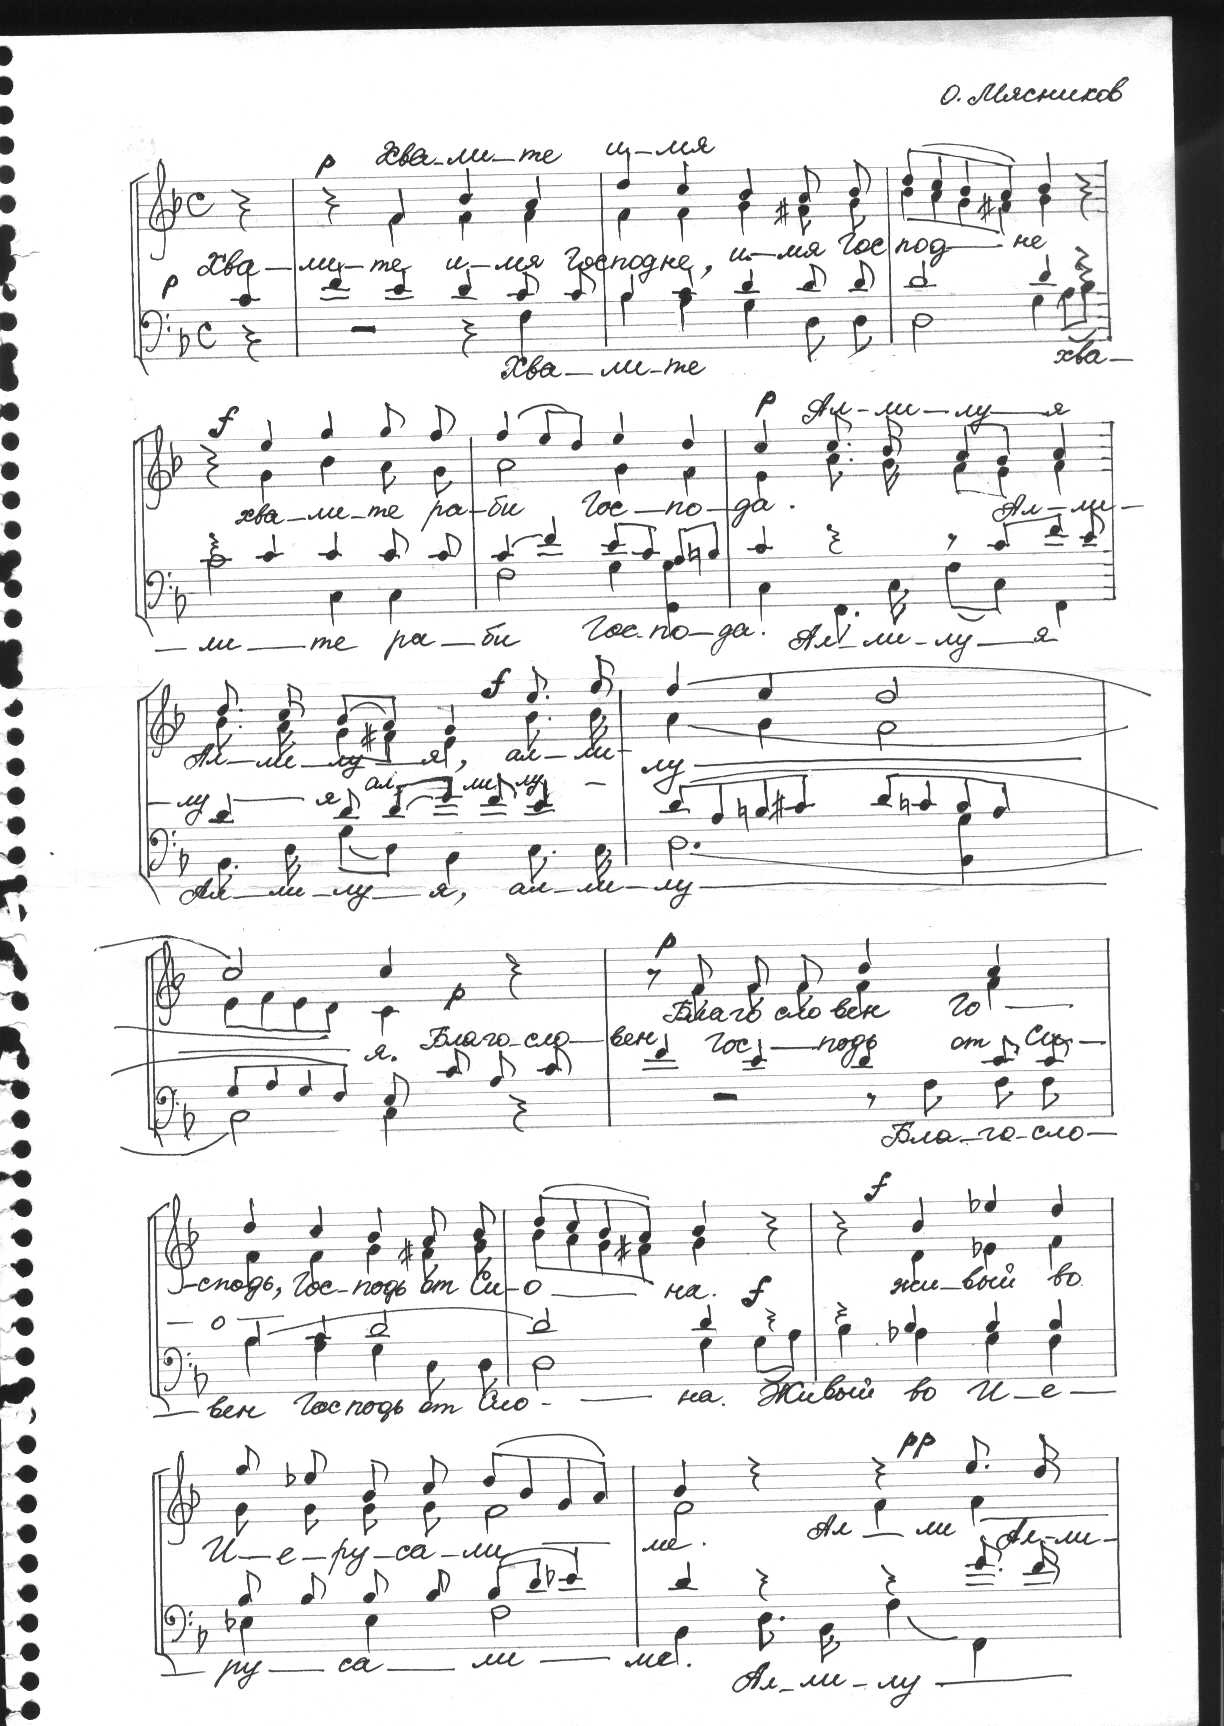 О. Мясников
Хва-ли-те и-мя
p
Хва-ли-те и-мя Господне, и-мя Гос под-не
p
Хва-ли-те хва-
f p Ал-ли-лу-я
хва-ли-те ра-би Гос-по-да. Ал-ли-
-ли-те ра-би Гос-по-да. Ал-ли-лу-я
f
Ал-ли-лу-я, ал-ли-лу
-лу-я ал-ли лу-
Ал-ли-лу-я, ал-ли-лу
p
p Благо сло вен Го-
я. Благо-сло-вен Гос-подь от Си-
Бла-го-сло-
f
-сподь, Гос-подь от Си-о-на. f жи-вый во
-о-
-вен Гос подь от Сио-на. Живый во И-е-
pp
И-е-ру-са-ли-ме. Ал-ли Ал-ли-
-ру-са-ли-ме. Ал-ли-лу-